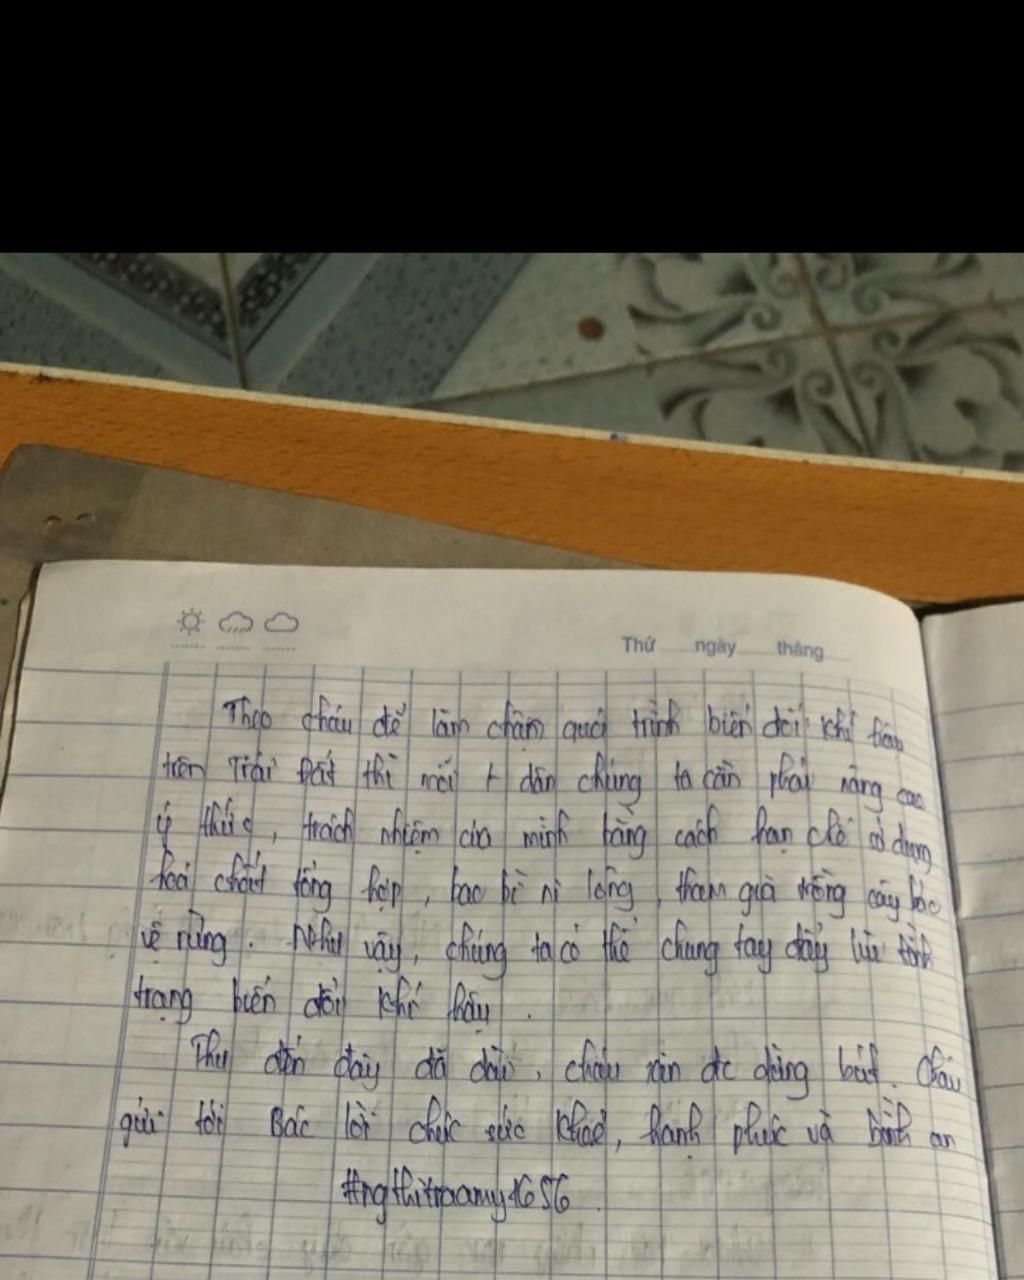 Thứ ngày tháng
Theo cháu để làm chậm quá trình biến đổi khí hậu
trên Trái Đất thì mỗi 1 dân chúng ta cần phải nâng cao
ý thức, trách nhiệm của mình bằng cách hạn chế sử dụng
hoá chất tổng hợp, bao bì ni lông, tham gia trồng cây bảo
vệ rừng. Như vậy, chúng ta có thể chung tay đẩy lùi tình
trạng biến đổi khí hậu.
Thư đến đây đã dài, cháu xin đc dừng bút. Cháu
gửi tới Bác lời chúc sức khoẻ, hạnh phúc và bình an
#ngthitraamy1656